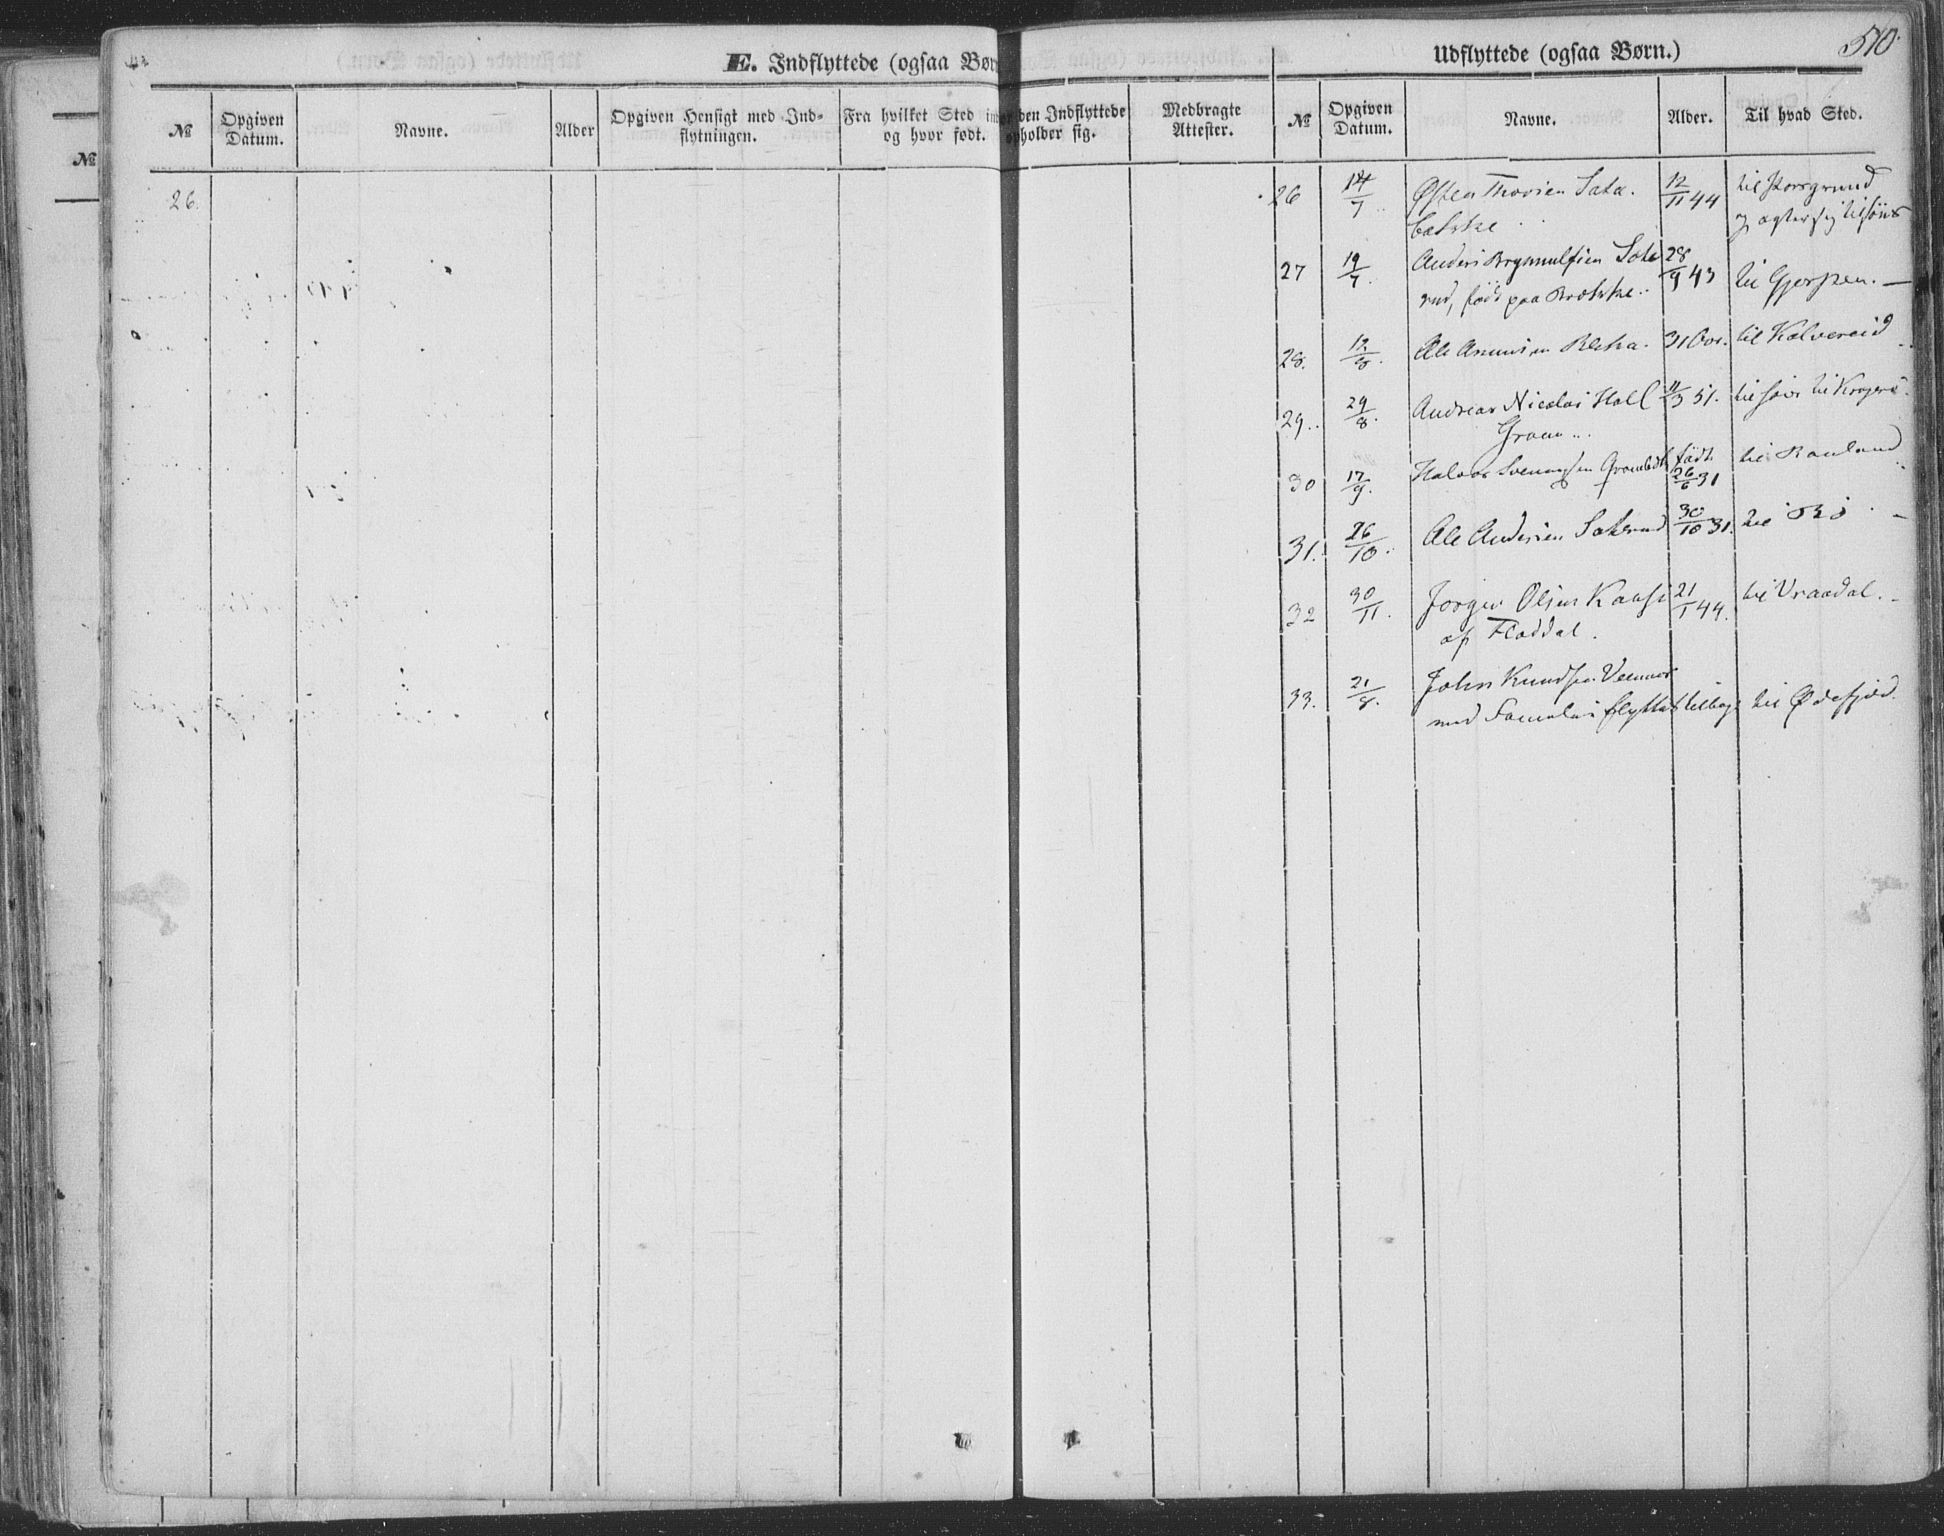 E. Indflyttede (ogsaa Børn
Udflyttede (ogsaa Børn.)
510.
№
№ Opgiven Datum. Navne. Alder Opgiven Hensigt med Ind-flytningen. Fra hvilket Sted og hvor født. den Indflyttede opholder sig. Medbragte Attester.
№ Opgiven Datum. Navne. Alder. Til hvad Sted.
26.
26 14/7 Østen 12/11 44 til Porsgrund
og agter sig tilsøes
27 19/7. Anders Brynnulfsen 28/9 43 til Gjerpen. —
rud, født paa
28. 12/8. Ole 31 til
29.. 29/8. Andreas Nicolai Hall 11/3 51. til søes til Kragerø.
Groen..
30 17/9. Halvor Svenungsen født 26/6 31 til Rauland
31. 26/10. Ole Andersen 30/10 31. til Bø —
32 30/11. Jørgen Olsen 21/1 44. til Vraadal. -
af Floddal.
33. 21/8. John Knudsen
med Familie flyttet tilbage til Ødefjeld.